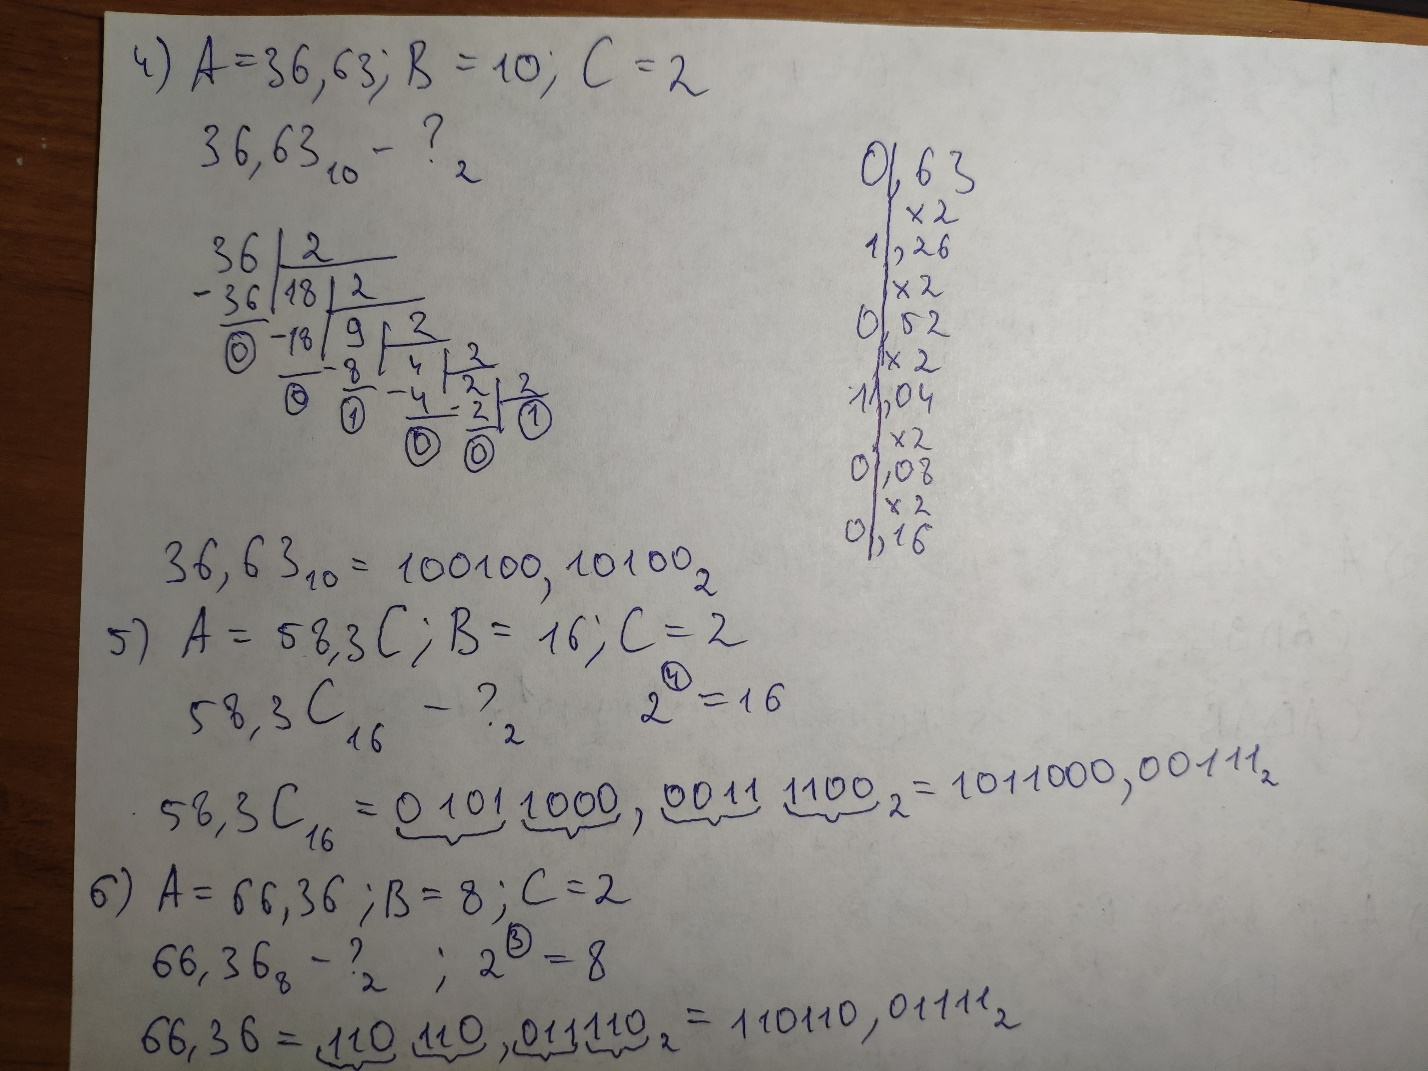 4) A = 36,63; B = 10; C = 2
36,63₁₀ - ?₂
36 | 2
-36 | 18 | 2
0 -18 | 9 | 2
0 -8 | 4 | 2
1 -4 | 2 | 2
0 -2 | 1
0
0,63
×2
1,26
×2
0,52
×2
1,04
×2
0,08
×2
0,16
36,63₁₀ = 100100,10100₂
5) A = 58,3C; B = 16; C = 2
58,3C₁₆ - ?₂ 2⁴ = 16
58,3C₁₆ = 0101 1000, 0011 1100₂ = 1011000,001111₂
6) A = 66,36; B = 8; C = 2
66,36₈ - ?₂ ; 2³ = 8
66,36 = 110 110, 011 110₂ = 110110,01111₂